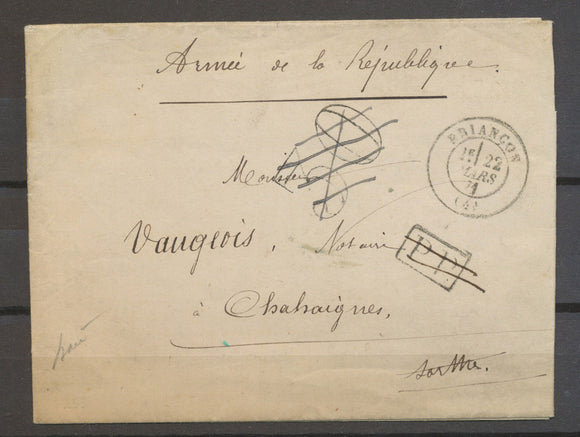 Armée de la République.
BRIANÇON
1E 22
MARS
71
(4)
Monsieur
Vaugeois, Notaire
P.P.
à Chahaignes,
Sarthe.